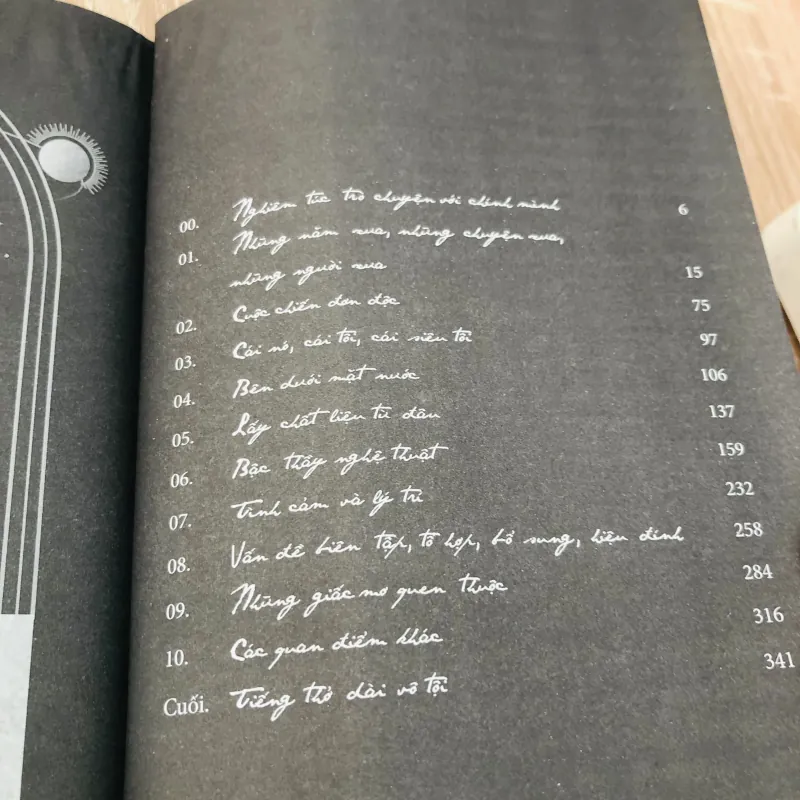 00. Nghiêm túc trò chuyện với chính mình 6
01. Những năm xưa, những chuyện xưa,
những người xưa 15
02. Cuộc chiến đơn độc 75
03. Cái nó, cái tôi, cái siêu tôi 97
04. Bên dưới mặt nước 106
05. Lấy chất liệu từ đâu 137
06. Bậc thầy nghệ thuật 159
07. Tình cảm và lý trí 232
08. Vấn đề biên tập, tổ hợp, bổ sung, hiệu đính 258
09. Những giấc mơ quen thuộc 284
10. Các quan điểm khác 316
Cuối. Tiếng thở dài vô tội 341